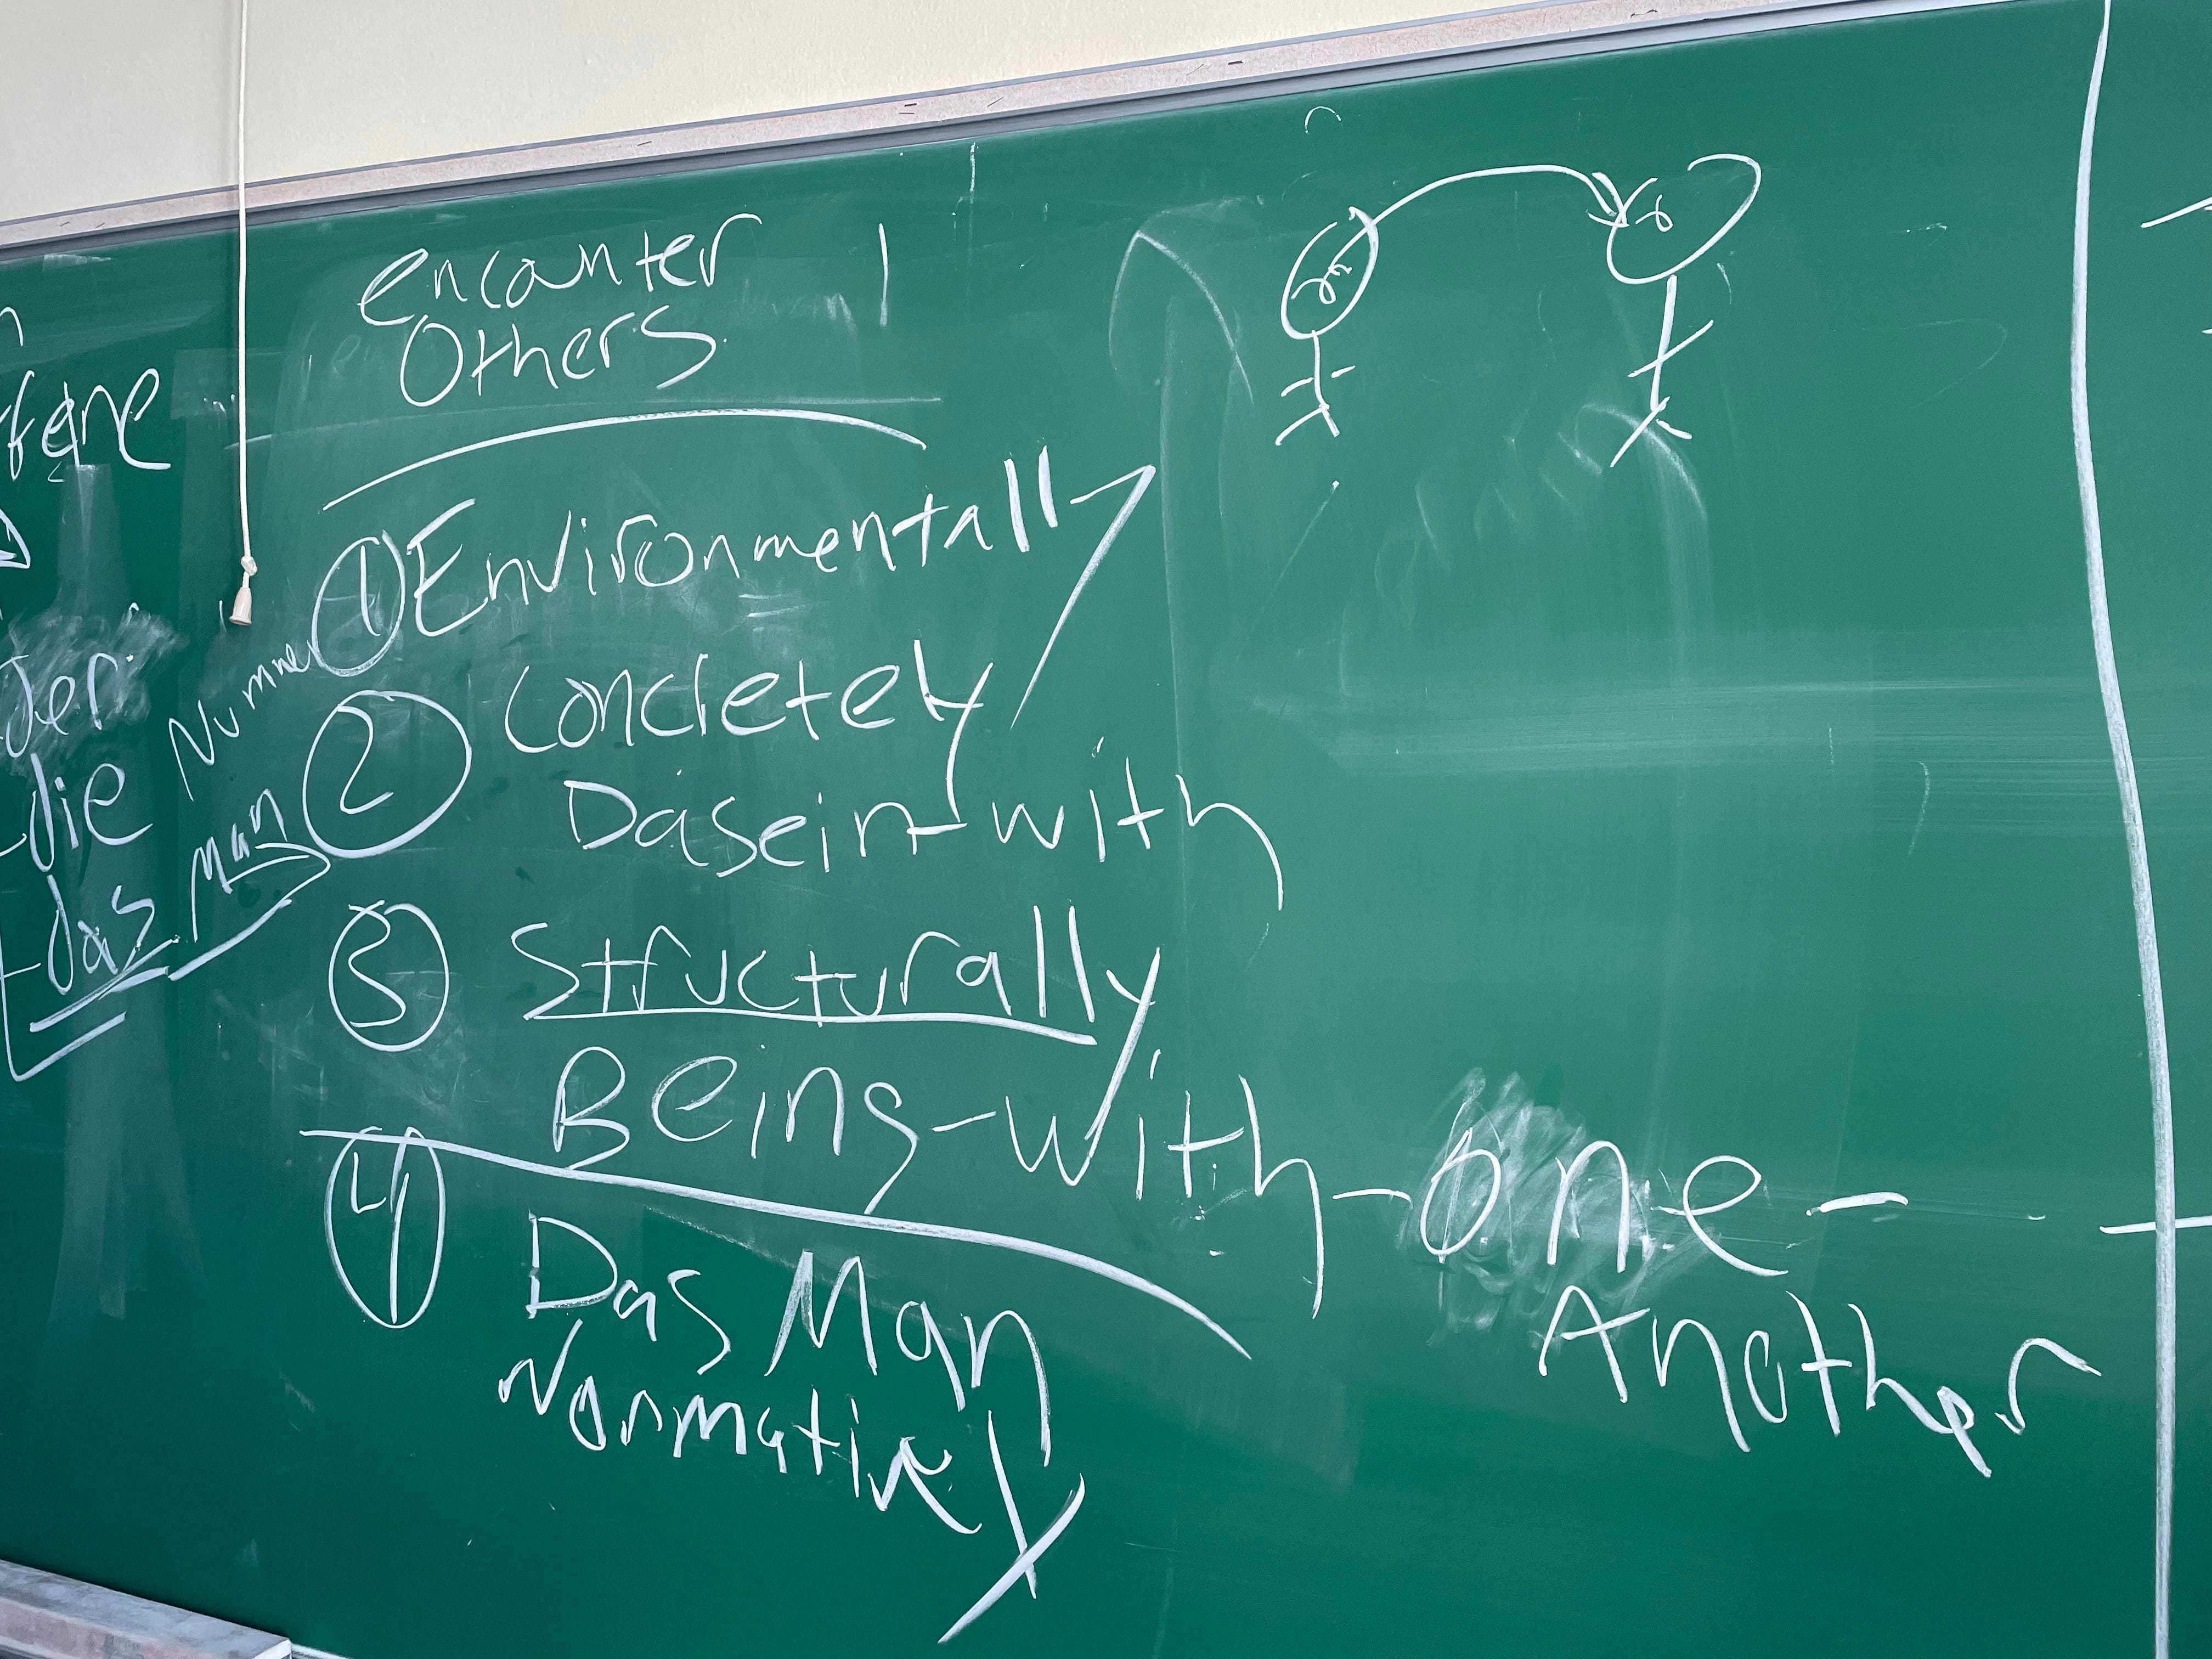 encounter
Others
① Environmentally
② Concretely
Dasein-with
③ Structurally
Being-with-one-
Another
④ Das Man
Normatively
der
die Nummer
das Man